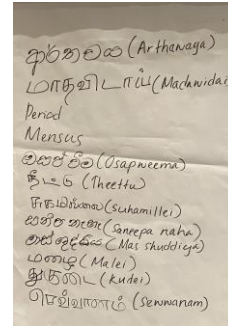 ආර්තවය (Arthawaya)
மாதவிடாய் (Madawidai
Period
Mensus
ඔසප්වීම (Osapweema)
தீட்டு (Theettu)
சுகமில்லை (Suhamillei)
සනීප නැහැ (Saneepa naha)
මස් ශුද්ධිය (Mas shuddiya)
மழை (Malei)
குடை (Kudei)
செவ்வானம் (Sewwanam)